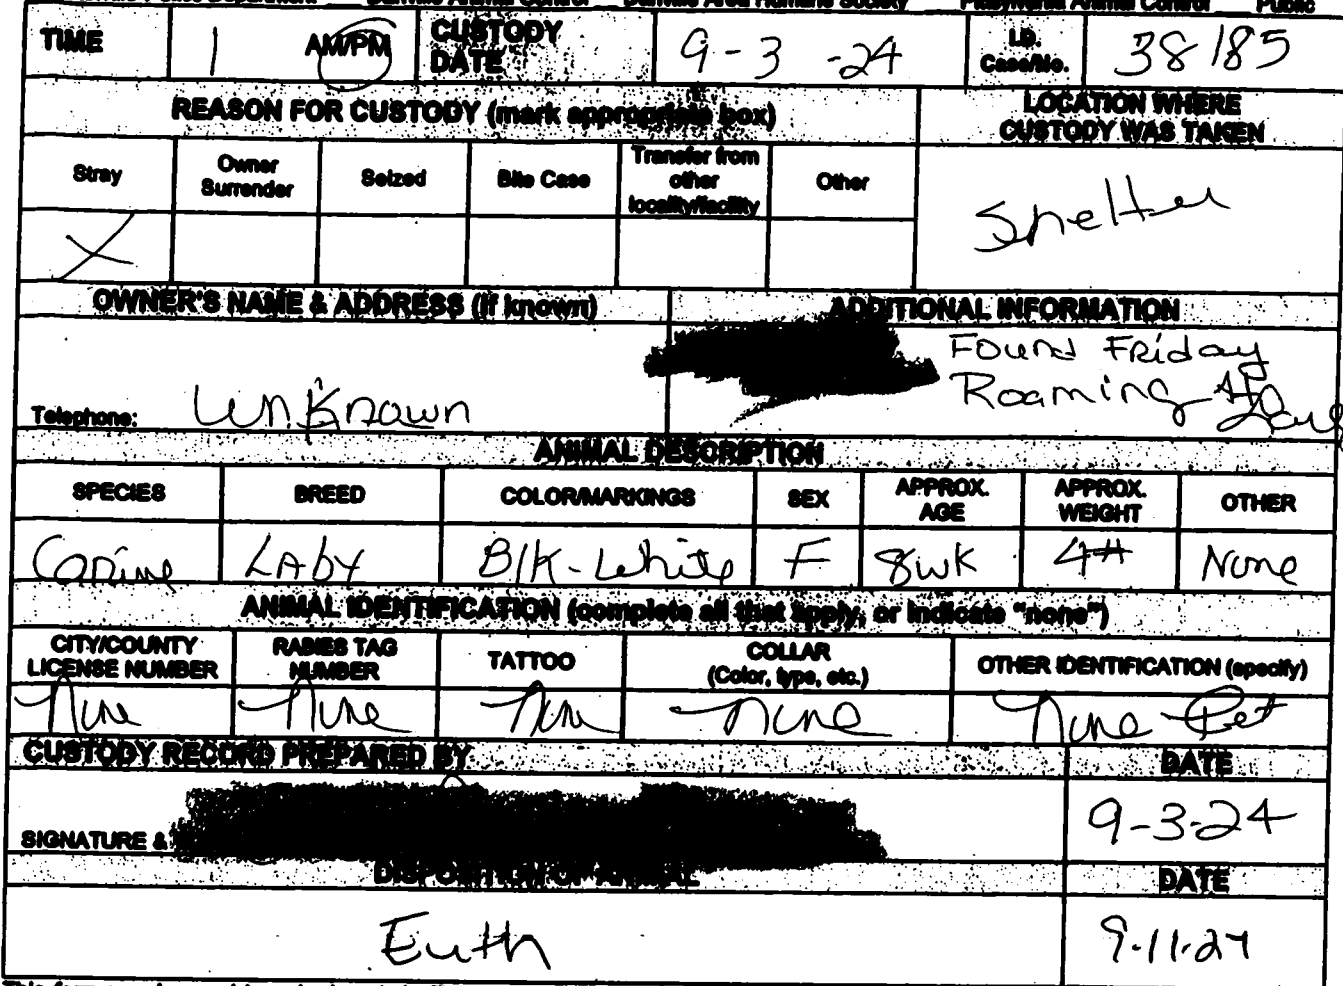 Police Department Danville Animal Control Danville Area Humane Society Pittsylvania Animal Control Public
TIME 1 AM/PM CUSTODY DATE 9-3-24 I.D. Case/No. 38185
REASON FOR CUSTODY (mark appropriate box)
LOCATION WHERE CUSTODY WAS TAKEN
Stray
Owner Surrender
Seized
Bite Case
Transfer from other locality/facility
Other
X
Shelter
OWNER'S NAME & ADDRESS (if known)
ADDITIONAL INFORMATION
Found Friday
Roaming
Telephone: Unknown
ANIMAL DESCRIPTION
SPECIES BREED COLOR/MARKINGS SEX APPROX. AGE APPROX. WEIGHT OTHER
Canine LAby Blk-White F 8wk 4# None
ANIMAL IDENTIFICATION (complete all that apply, or indicate "none")
CITY/COUNTY LICENSE NUMBER
RABIES TAG NUMBER
TATTOO
COLLAR (Color, type, etc.)
OTHER IDENTIFICATION (specify)
None None None None None Pet
CUSTODY RECORD PREPARED BY DATE
SIGNATURE & 9-3-24
DISPOSITION OF ANIMAL DATE
Euth 9-11-24